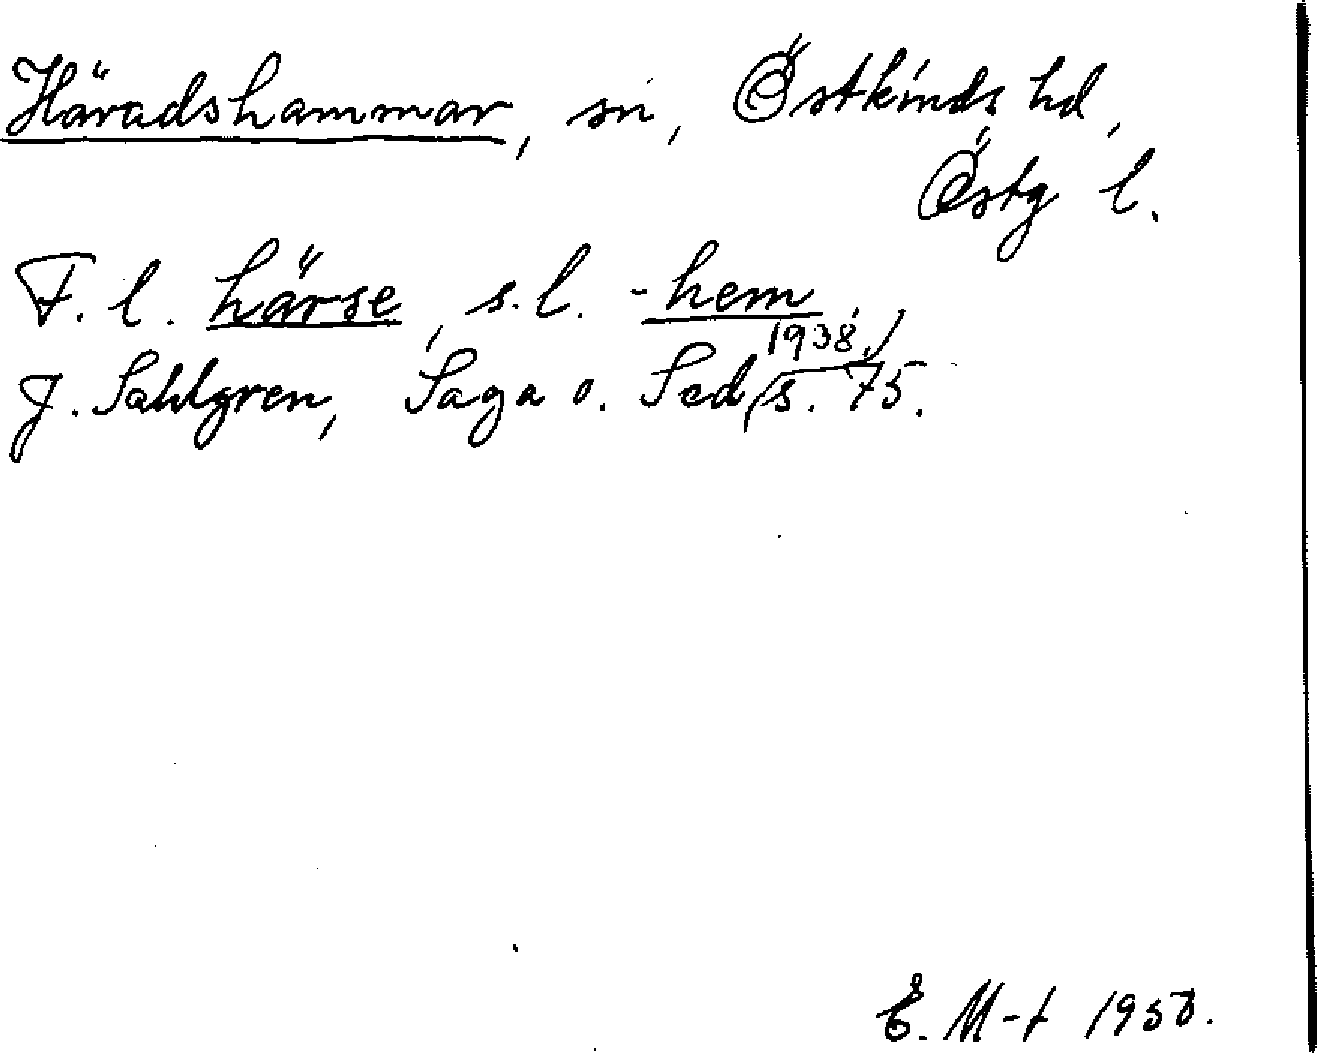 Häradshammar, sn, Östkinds hd,
Östg l.
F. l. härse, s. l. -hem
J. Sahlgren, Saga o. Sed (1938,) s. 75.
E. M-t